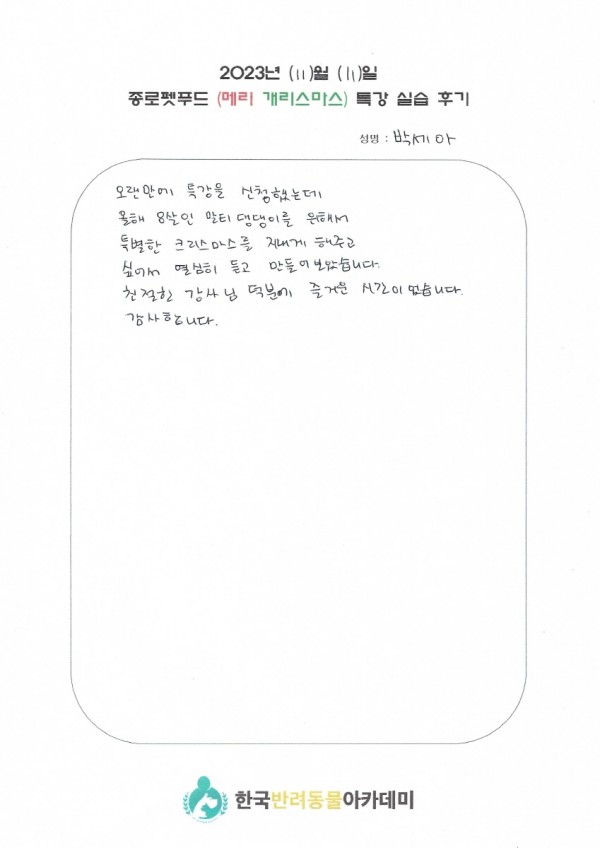 2023년 (11)월 (11)일
종로펫푸드 (메리 개리스마스) 특강 실습 후기
성명 : 박세아
오랜만에 특강을 신청했는데
올해 8살인 말티 댕댕이를 위해서
특별한 크리스마스를 지내게 해주고
싶어서 열심히 듣고 만들어보았습니다.
친절한 강사님 덕분에 즐거운 시간이었습니다.
감사합니다.
한국반려동물아카데미